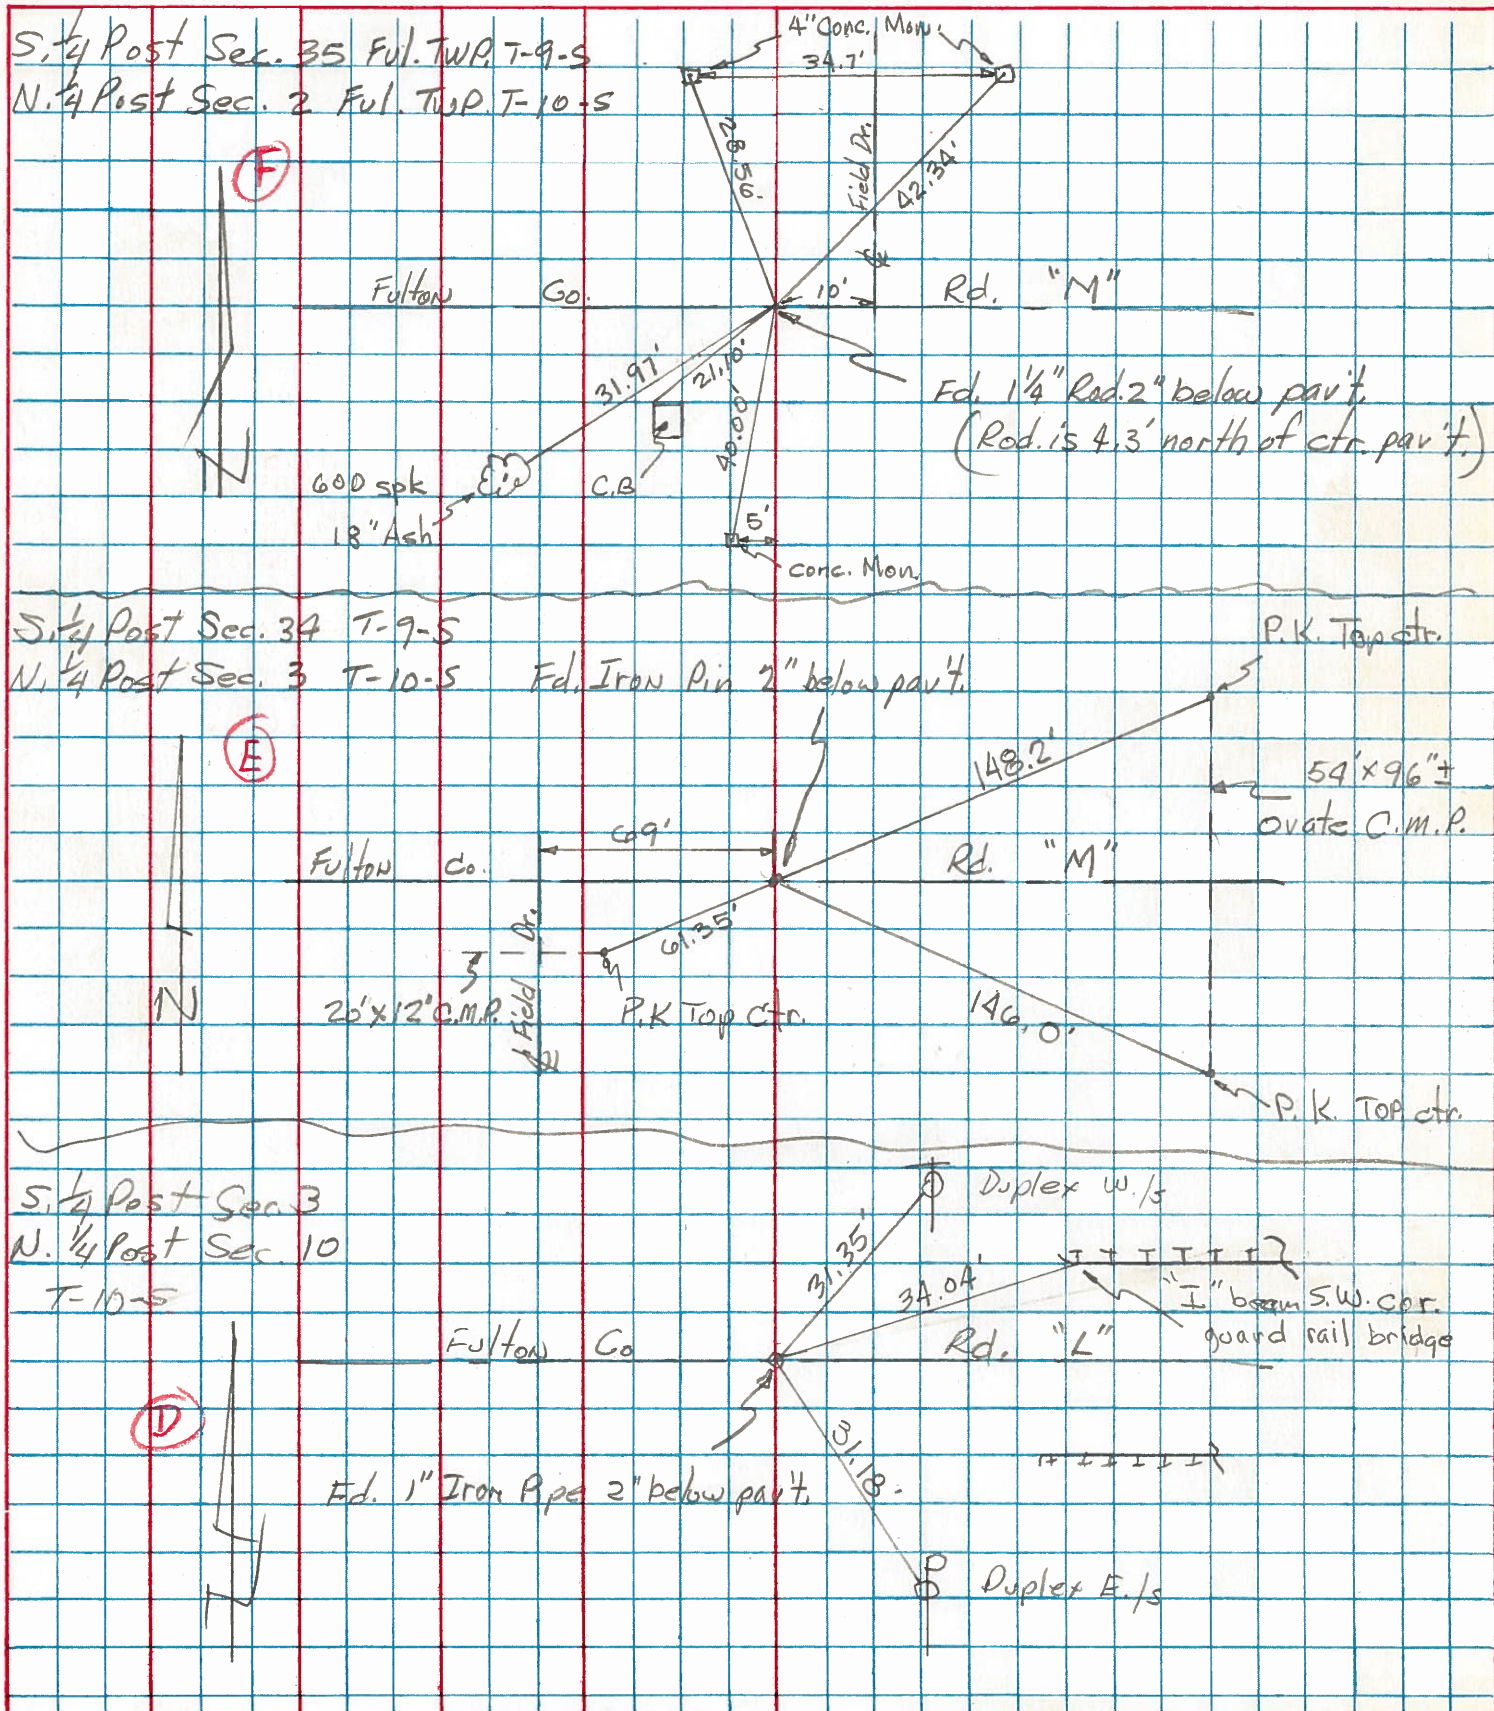 S. 1/4 Post Sec. 35 Ful. TWP. T-9-S
N. 1/4 Post Sec. 2 Ful. TWP. T-10-S
F
4" Conc. Mon.
34.7'
28.56'
Field Dr.
42.34'
Fulton Co. Rd. "M"
10'
31.97'
21.10'
40.00'
Fd. 1 1/4" Rod. 2" below pav't.
(Rod. is 4.3' north of ctr. pav't.)
N
60D spk
18" Ash
C.B
5'
conc. Mon.
S. 1/4 Post Sec. 34 T-9-S
N. 1/4 Post Sec. 3 T-10-S
Fd. Iron Pin 2" below pav't.
E
P.K. Top ctr.
148.2'
54'x96"±
Ovate C.M.P.
69'
Fulton Co. Rd. "M"
61.35'
Field Dr.
20'x12" C.M.P.
P.K Top Ctr.
146.0'
N
P.K. TOP ctr.
S. 1/4 Post Sec. 3
N. 1/4 Post Sec. 10
T-10-S
Duplex W./s
31.35'
34.04'
"I" beam S.W. cor.
guard rail bridge
Fulton Co Rd. "L"
D
31.18'
Fd. 1" Iron Pipe 2" below pav't.
N
Duplex E./s